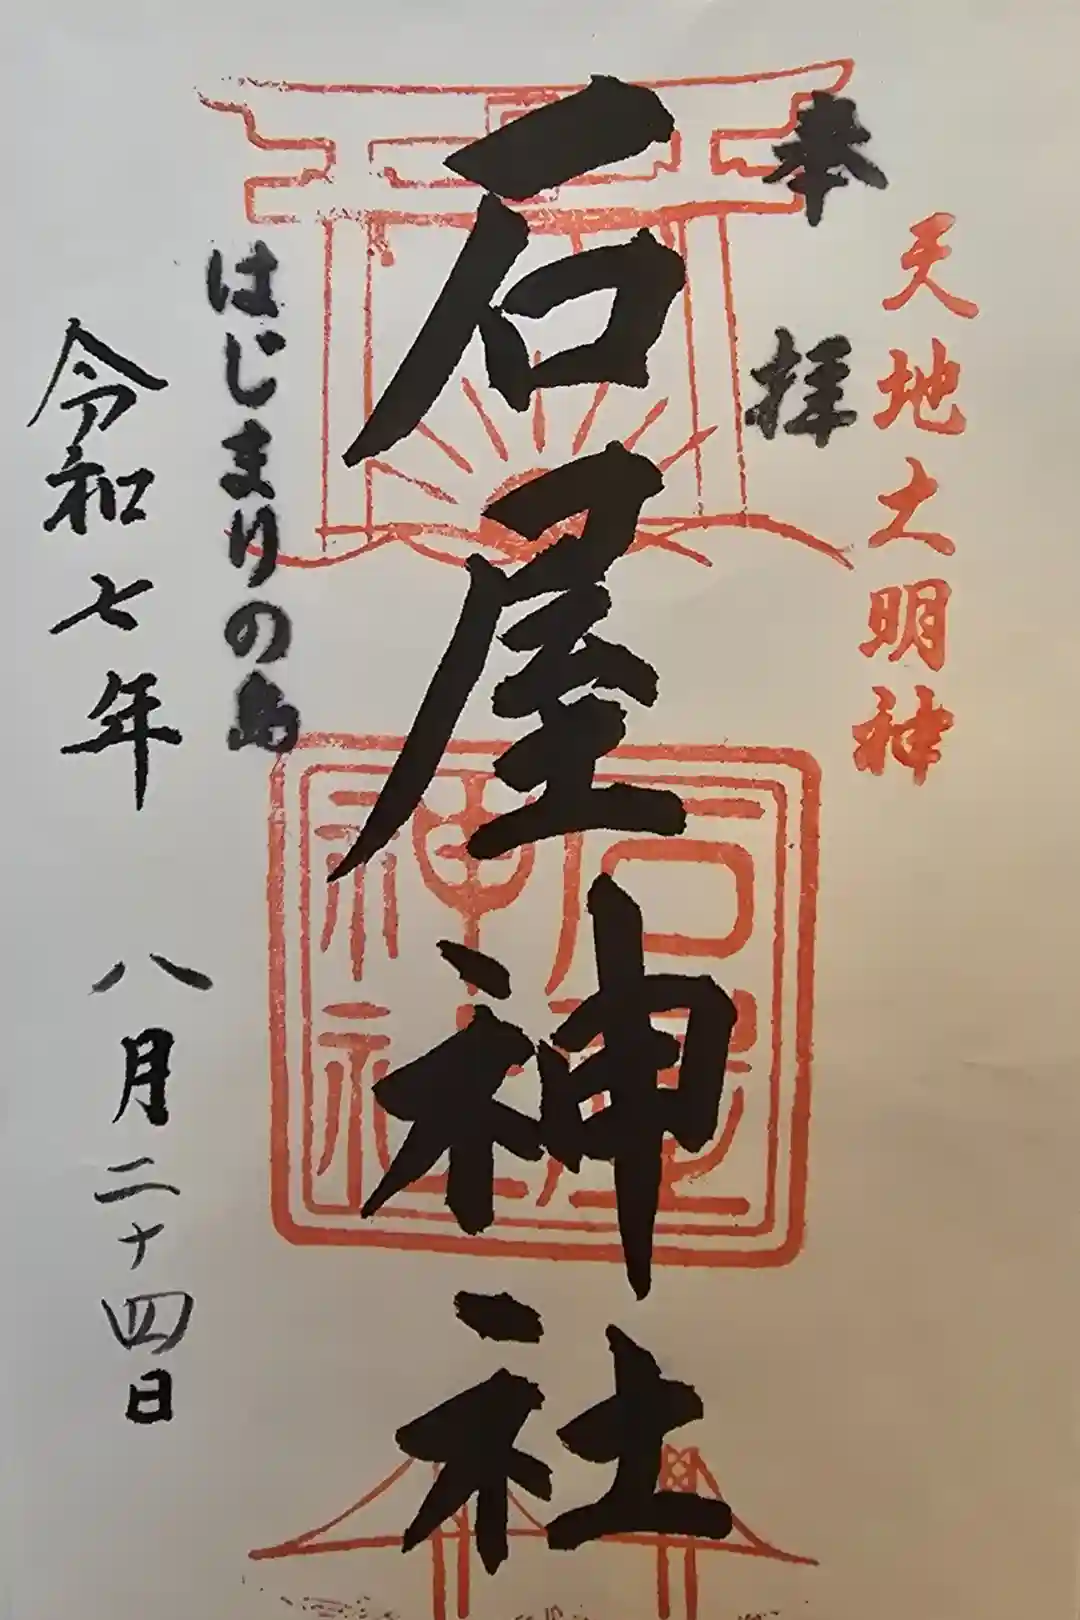 天地大明神
奉拝
石屋神社
石屋
神社
はじまりの島
令和七年 八月二十四日